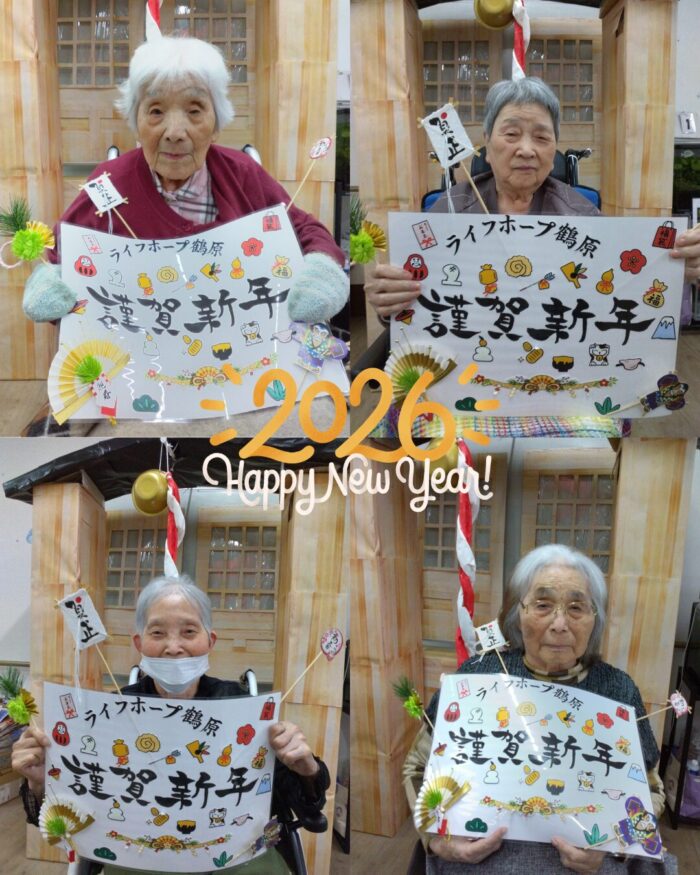 賀正
ライフホープ鶴原
謹賀新年
賀正
ライフホープ鶴原
謹賀新年
2026
Happy New Year!
賀正
ライフホープ鶴原
謹賀新年
賀正
ライフホープ鶴原
謹賀新年